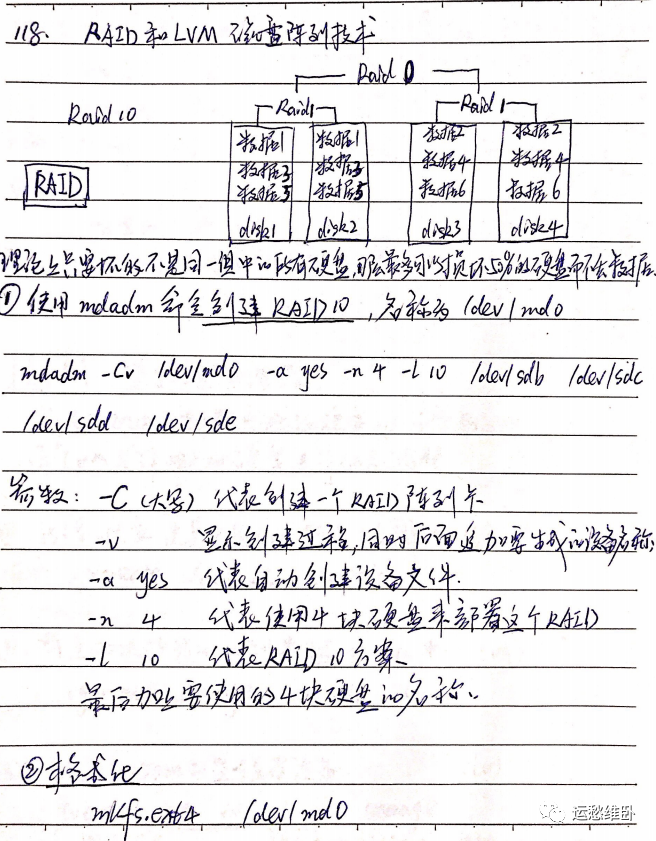 118. RAID和LVM磁盘阵列技术
Raid 0
Raid 10
Raid 1 Raid 1
数据1 数据1 数据2 数据2
数据3 数据3 数据4 数据4
RAID
数据5 数据5 数据6 数据6
disk1 disk2 disk3 disk4
理论上只要坏的不是同一组中的所有硬盘,那么最多可以损坏50%的硬盘而不会丢数据.
①使用mdadm命令创建RAID10,名称为/dev/md0
mdadm -Cv /dev/md0 -a yes -n 4 -l 10 /dev/sdb /dev/sdc
/dev/sdd /dev/sde
参数: -C (大写) 代表创建一个RAID阵列卡
-v 显示创建过程,同时后面追加要生成的设备名称;
-a yes 代表自动创建设备文件.
-n 4 代表使用4块硬盘来部署这个RAID
-l 10 代表RAID 10方案.
最后加上要使用的4块硬盘的名称.
②格式化
mkfs.ext4 /dev/md0
运愁维卧